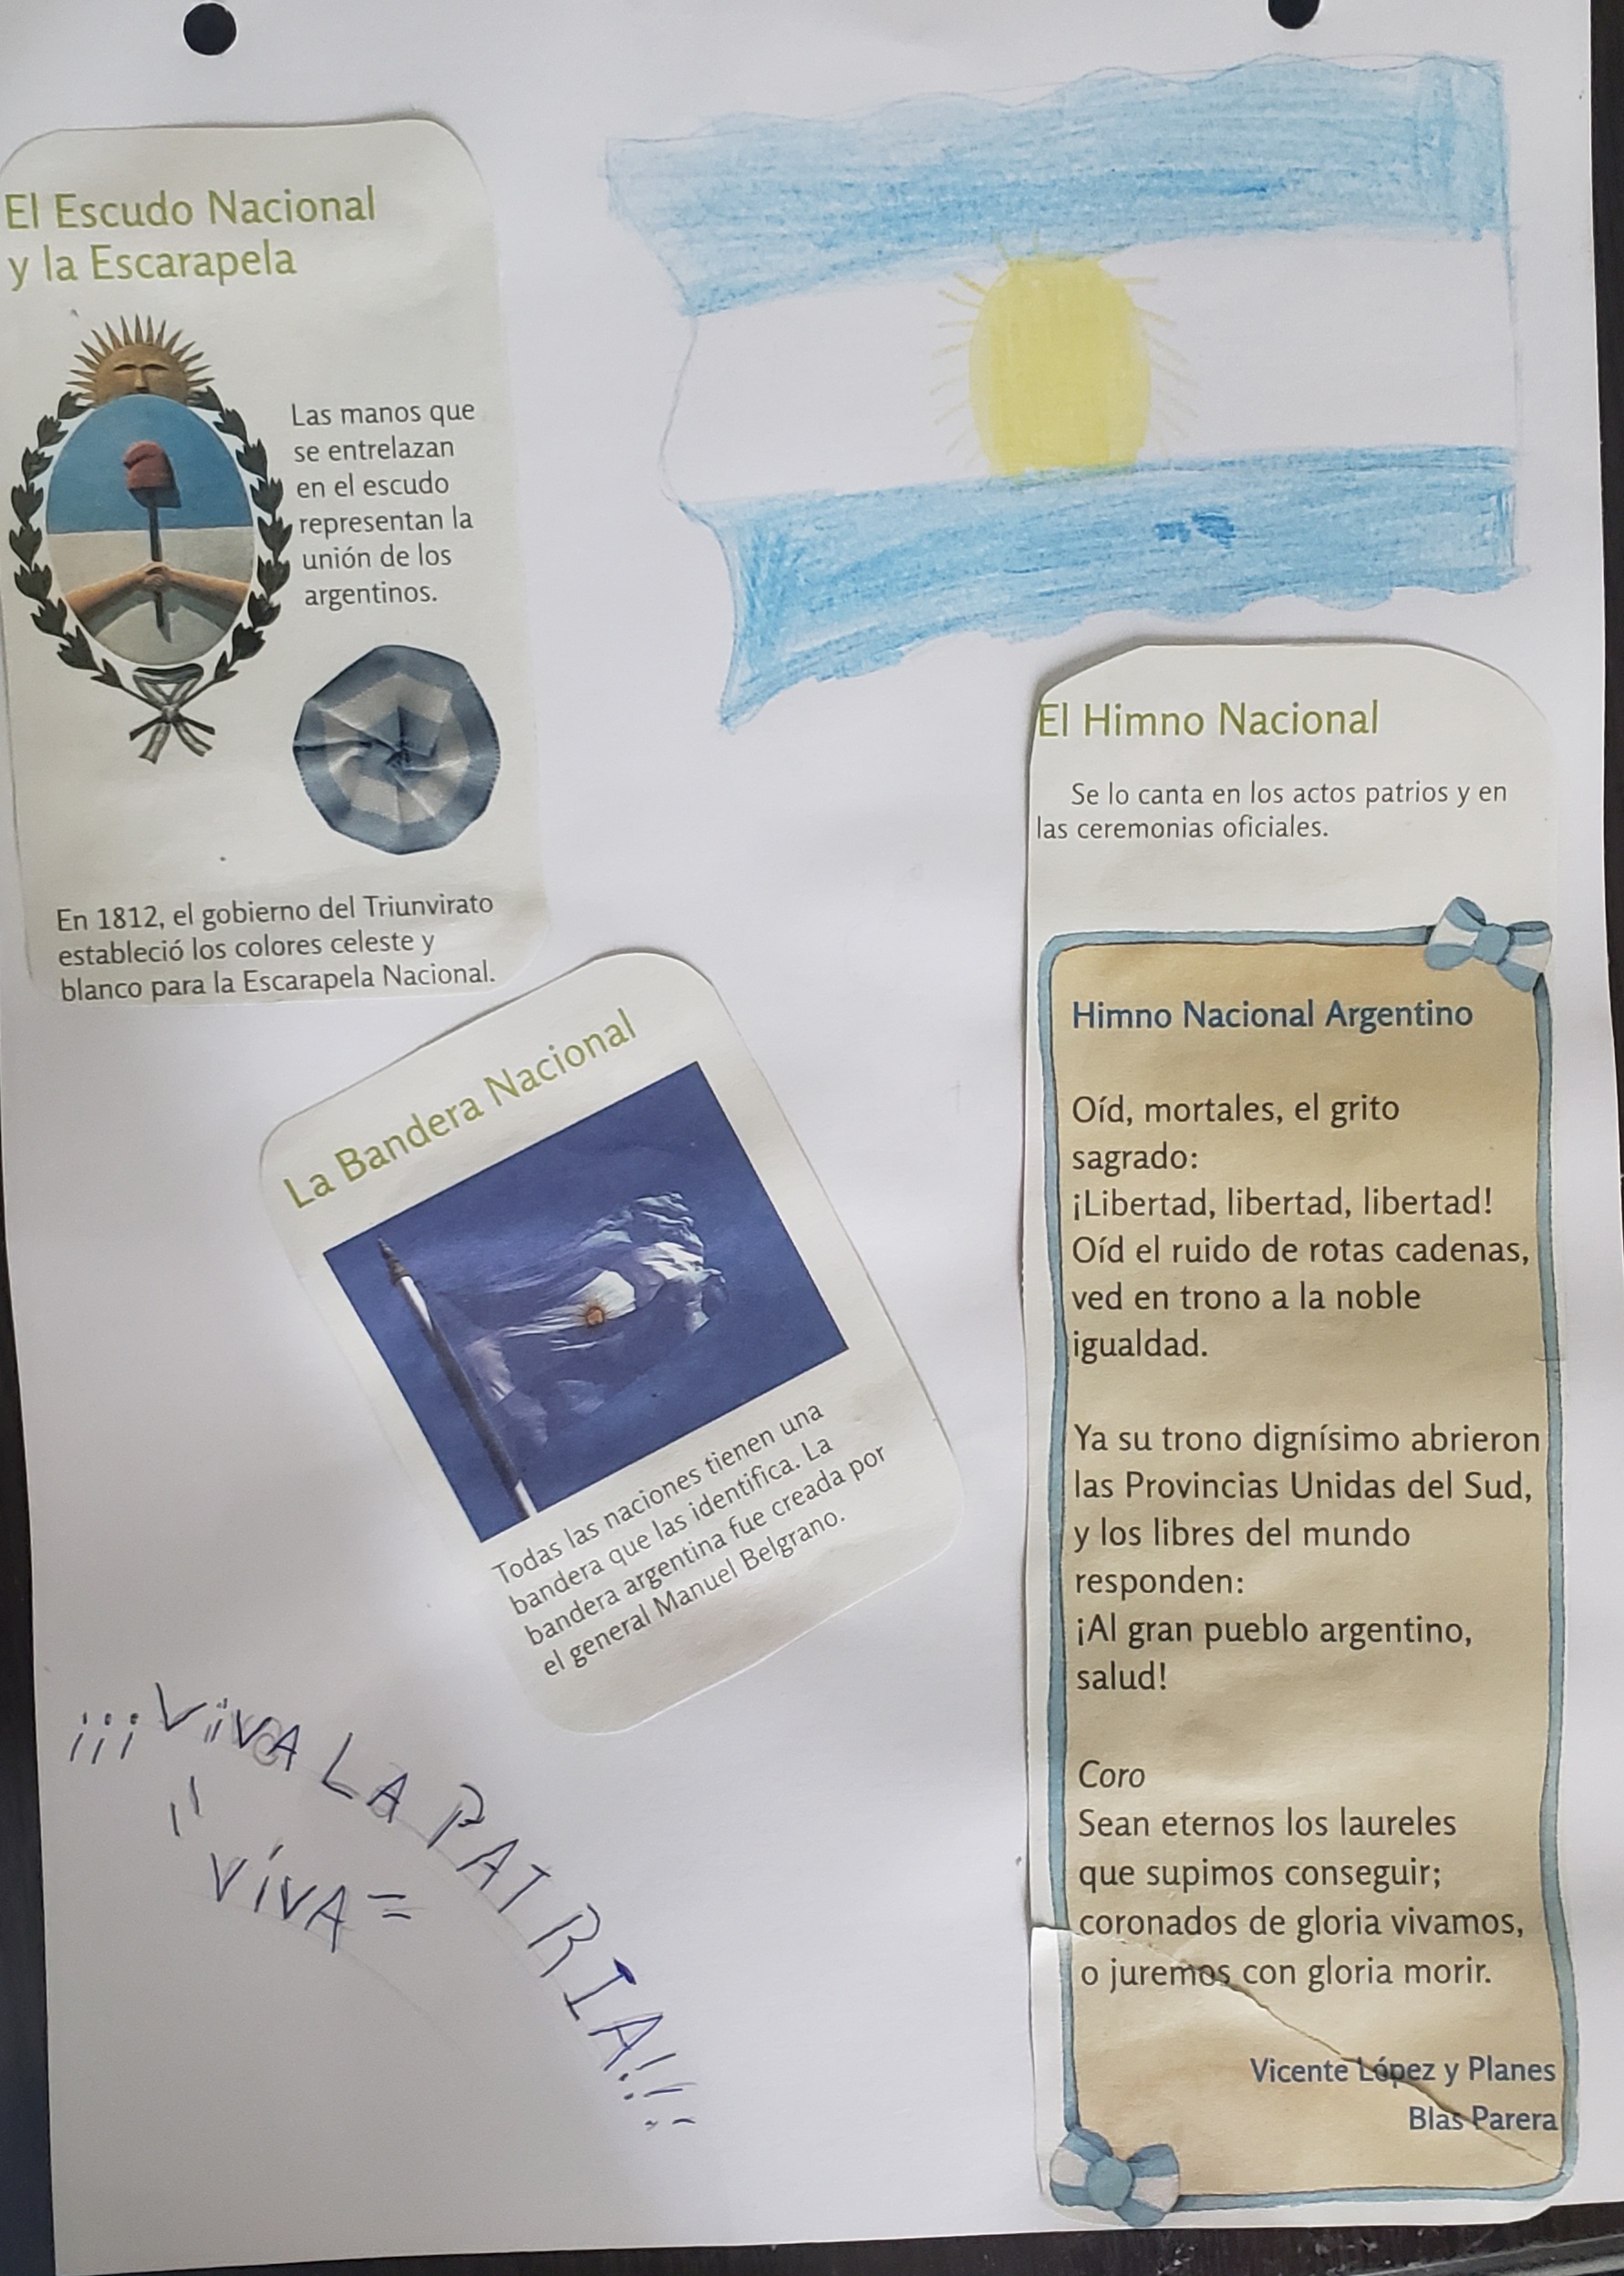 El Escudo Nacional
y la Escarapela
Las manos que
se entrelazan
en el escudo
representan la
unión de los
argentinos.
En 1812, el gobierno del Triunvirato
estableció los colores celeste y
blanco para la Escarapela Nacional.
La Bandera Nacional
Todas las naciones tienen una
bandera que las identifica. La
bandera argentina fue creada por
el general Manuel Belgrano.
¡¡¡ViVA LA PATRIA!!!
"ViVA"
El Himno Nacional
Se lo canta en los actos patrios y en
las ceremonias oficiales.
Himno Nacional Argentino
Oíd, mortales, el grito
sagrado:
¡Libertad, libertad, libertad!
Oíd el ruido de rotas cadenas,
ved en trono a la noble
igualdad.
Ya su trono dignísimo abrieron
las Provincias Unidas del Sud,
y los libres del mundo
responden:
¡Al gran pueblo argentino,
salud!
Coro
Sean eternos los laureles
que supimos conseguir;
coronados de gloria vivamos,
o juremos con gloria morir.
Vicente López y Planes
Blas Parera